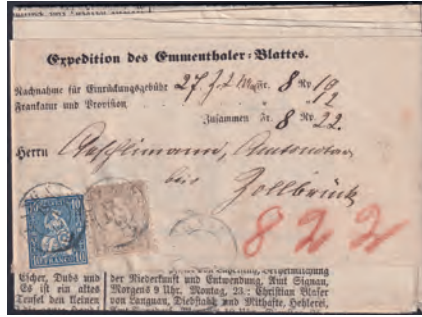 Expedition des Emmenthaler-Blattes.
Nachnahme für Einrückungsgebühr 27. J. 2 Fr. 8 Rp 19/2
Frankatur und Provision
Zusammen Fr. 8 Rp 22.
Herrn Aeschlimann, Amtsnotar
bei Zollbrück
10 10
FRANCO
8 2 2
Escher, Dubs und
Es ist ein altes
Teufel den kleinen
der Niederkunft und Entwendung, Amt Signau,
Morgens 9 Uhr. Montag, 23.: Christian Blaser
von Langnau, Diebstahl und Mithafte, Hehlerei,